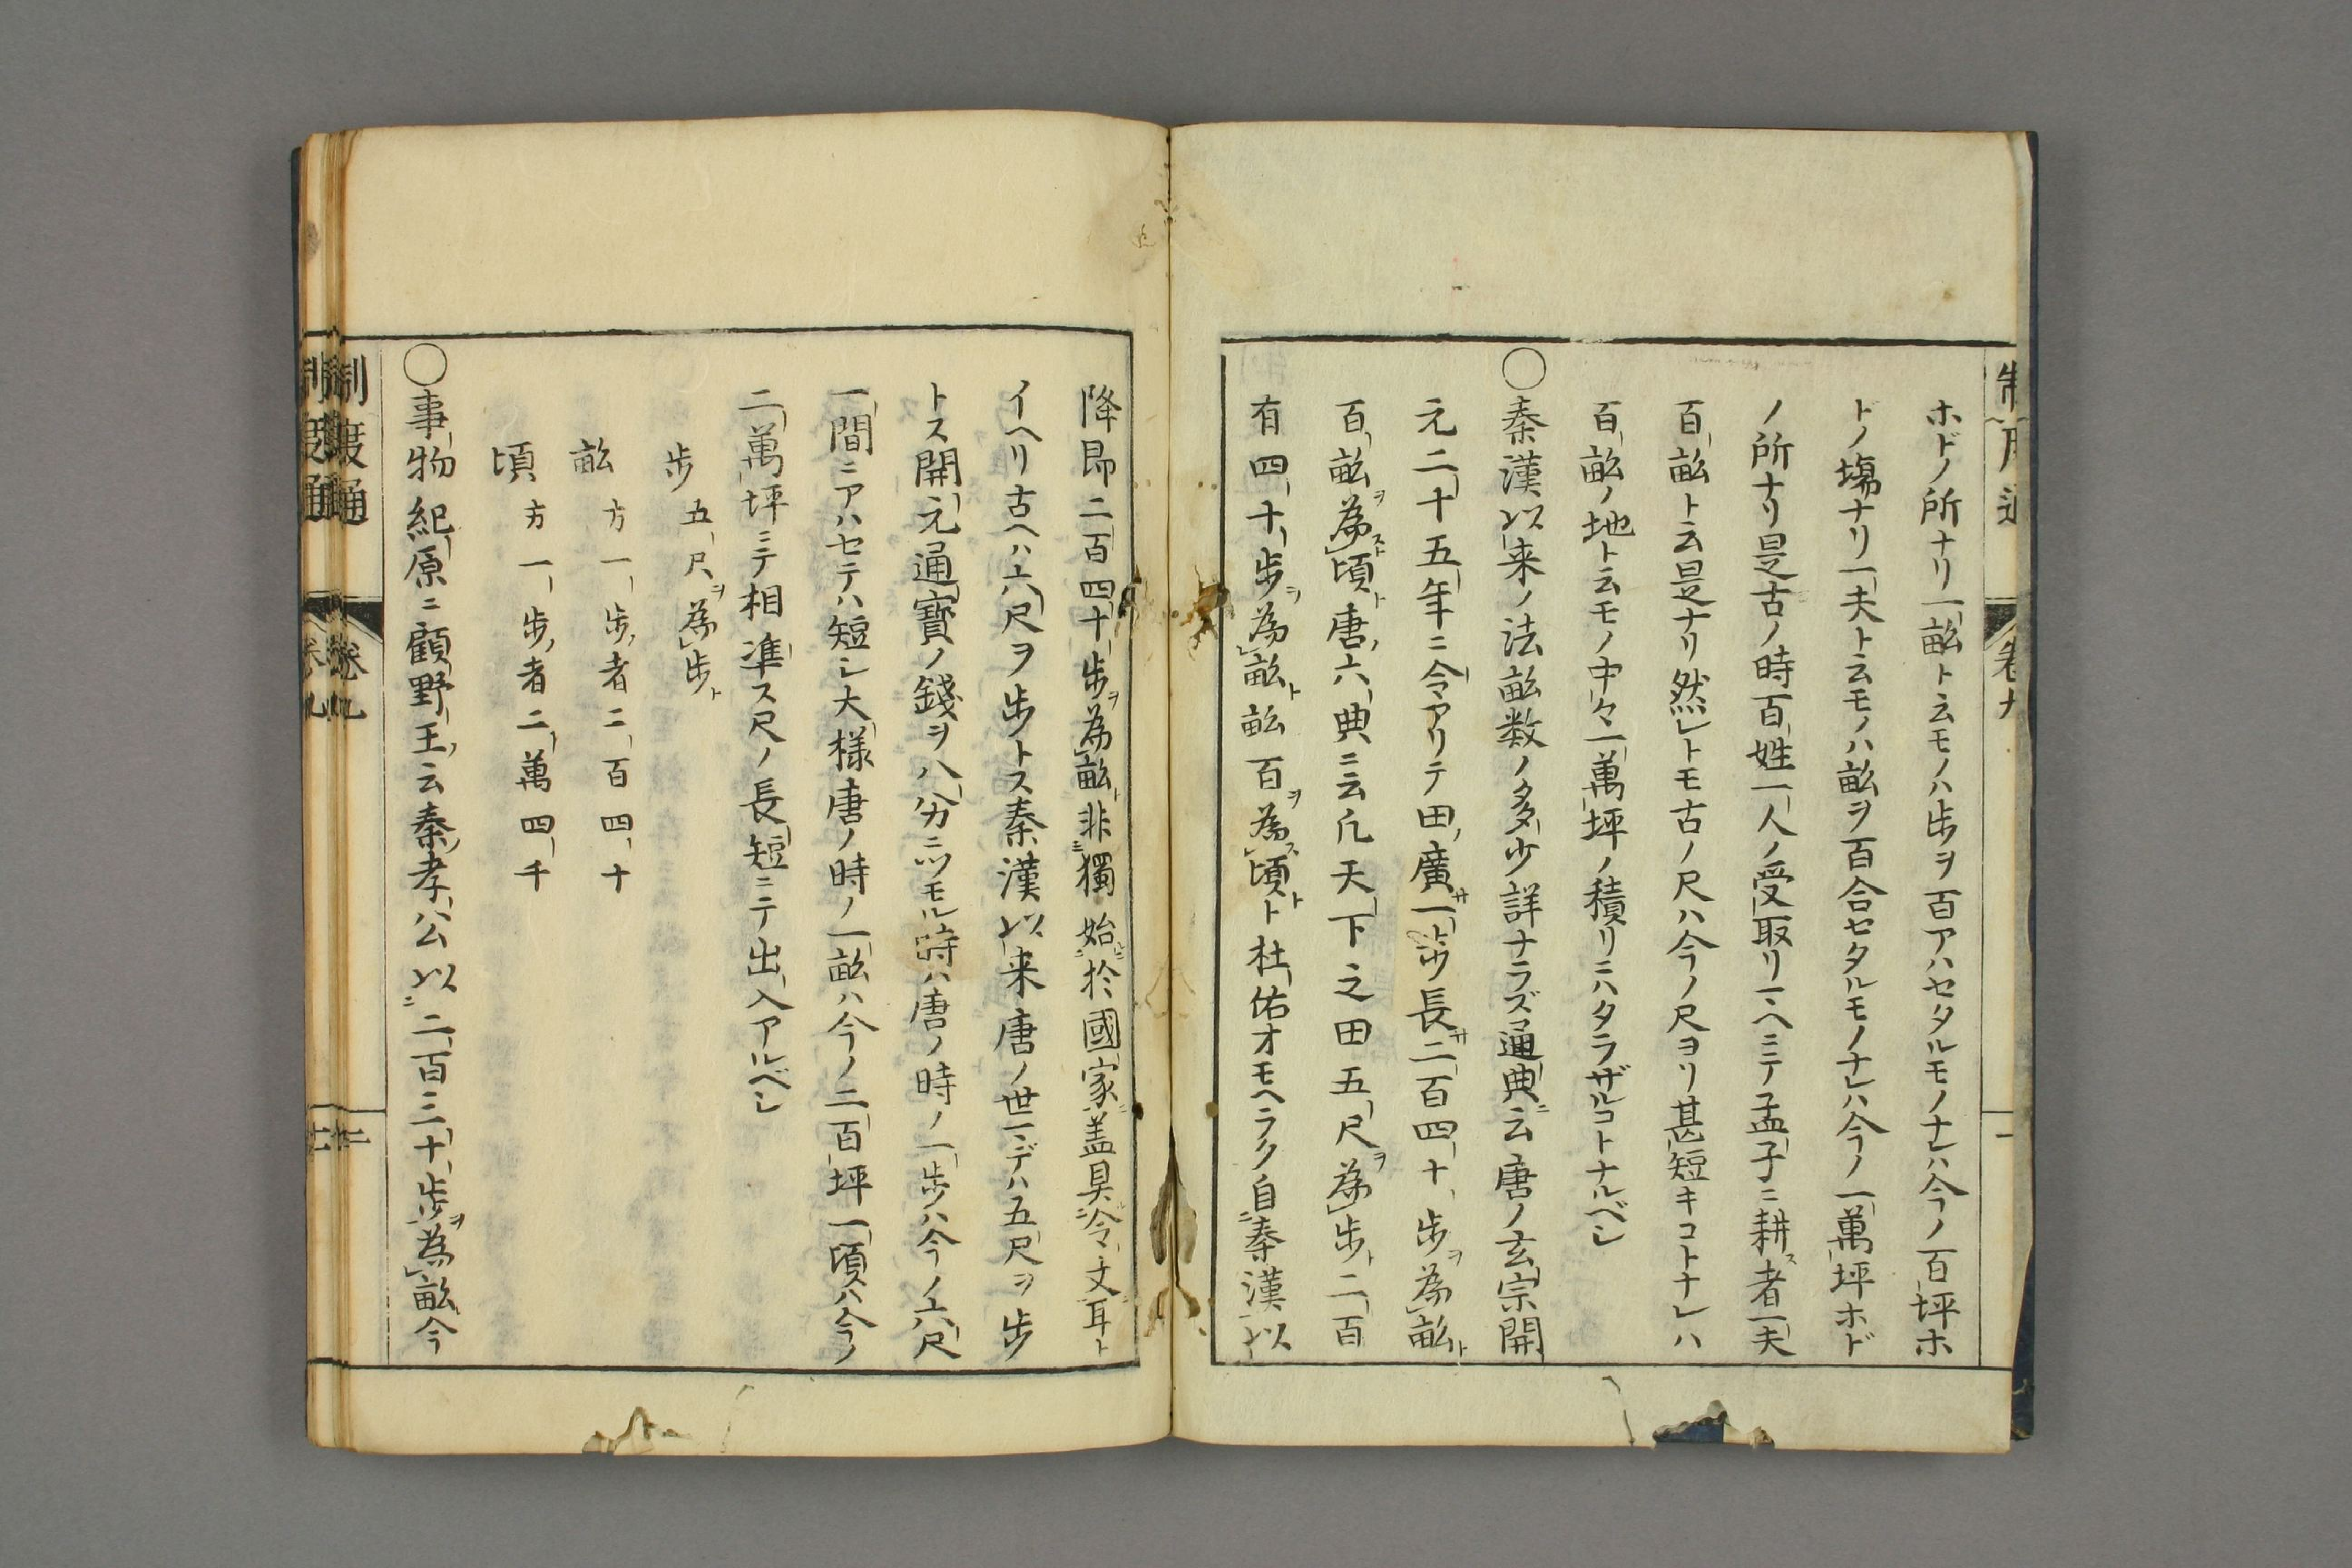 ホドノ所ナリ一畝ト云モノハ歩ヲ百アハセタルモノナレハ今ノ百坪ホ
トノ塲ナリ一夫ト云モノハ畝ヲ百合セタルモノナレハ今ノ一萬坪ホド
ノ所ナリ是古ノ時百姓一人ノ受取リ一ヘニテ孟子ニ耕ス者一夫
百畝ト云是ナリ然レトモ古ノ尺ハ今ノ尺ヨリ甚短キコトナレハ
百畝ノ地ト云モノ中々一萬坪ノ積リニハタラザルコトナルベシ
〇秦漢以来ノ法畝数ノ多少詳ナラズ通典ニ云唐ノ玄宗開
元二十五年ニ令アリテ田廣サ一歩長サ二百四十歩ヲ為畝ト
百畝ヲ為スト頃ト唐六典ニ云凡天下之田五尺ヲ為歩ト二百
有四十歩ヲ為畝ト畝百ヲ為ス頃トト杜佑オモヘラク自秦漢以
降即二百四十歩ヲ為畝ト非獨始於國家蓋具令文耳ト
イヘリ古ヘハ六尺ヲ歩トス秦漢以来唐ノ世マデハ五尺ヲ歩
トス開元通寳ノ錢ヲ八分ニツモル時ハ唐ノ時ノ一歩ハ今ノ六尺
一間ニアハセテハ短シ大様唐ノ時ノ一畝ハ今ノ二百坪一頃ハ今ノ
二萬坪ニテ相凖ス尺ノ長短ニテ出入アルベシ
歩 五尺ヲ為歩ト
畝 方一歩者二百四十
頃 方一歩者二萬四千
〇事物紀原ニ顧野王云秦孝公以二百三十歩ヲ為畝今
制度通 卷九 二